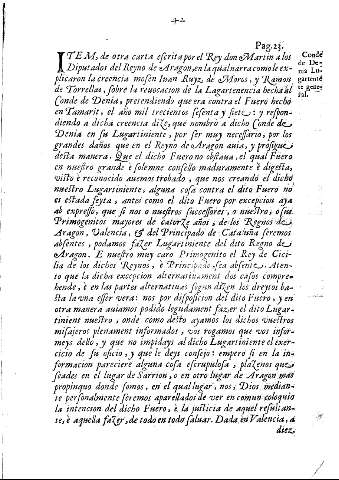 42
Pag. 23.
ITEM, de otra carta escrita por el Rey don Martin a los
Diputados del Reyno de Aragon, en la qual narra como le ex-
plicaron la creencia mosen Iuan Ruyz, de Moros, y Ramon
de Torrellas, sobre la reuocacion de la Lagartenencia hecha al
Conde de Denia, pretendiendo que era contra el Fuero hecho
en Tamarit, el año mil trecientos sesenta y siete: y respon-
diendo a dicha creencia dize, que nombrò a dicho Conde de
Denia en su Lugartiniente, por ser muy necessario, por los
grandes daños que en el Reyno de Aragon auia, y prosigue
desta manera. Que el dicho Fuero no obstaua, el qual Fuero
en nuestro grande è solemne consello maduramente è digesta,
visto è reconocido auemos trobado, que nos creando el dicho
nuestro Lugartiniente, alguna cosa contra el dito Fuero no
es estada feyta, antes como el dito Fuero por excepcion aya
ab expresso, que si nos o nuestros successores, o nuestro, o sus
Primogenitos mayores de catorze años, de los Regnos de
Aragon, Valencia, & del Principado de Cataluña seremos
absentes, podamos fazer Lugartiniente del dito Regno de
Aragon. E nuestro muy caro Primogenito el Rey de Cici-
lia de los dichos Reynos, è Principado sea absente. Aten-
to que la dicha excepcion alternatiuament dos casos compre-
hende, è en las partes alternatiuas segun dizen los dreytos ba-
sta la una esser vera: nos por disposicion del dito Fuero, y en
otra manera auiamos podido legudament fazer el dito Lugar-
tinient nuestro, onde como desto ayamos los dichos vuestros
misajeros plenament informados, vos rogamos que vos infor-
meys dello, y que no impidays al dicho Lugartiniente el exer-
cicio de su oficio, y que le deys consejo: empero si en la in-
formacion pareciere alguna cosa escrupulosa, plazenos que
seades en el lugar de Sarrion, o en otro lugar de Aragon mas
propinquo donde somos, en el qual lugar, nos, Dios median-
te personalmente seremos aparellados de ver en comun coloquio
la intencion del dicho Fuero, è la justicia de aquel resultan-
te, è aquella fazer, de todo en todo saluar. Dada in Valencia, a
diez
Conde
de De-
nia Lu-
gartenie
te gene-
ral.